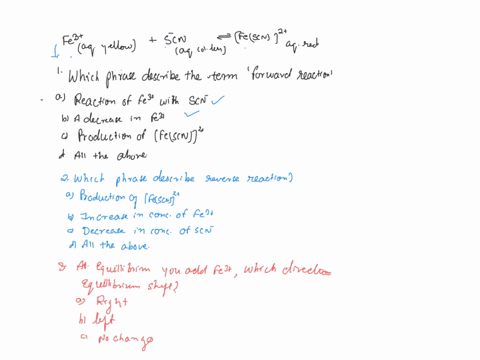 Fe³⁺ + SCN⁻ ⇌ [Fe(SCN)]²⁺
(aq yellow) (aq colorless) aq. red
1. Which phrase describe the term 'forward reaction'
a) Reaction of Fe³⁺ with SCN⁻ ✓
b) A decrease in Fe³⁺ ✓
c) Production of [Fe(SCN)]²⁺
d) All the above
2. Which phrase describe reverse reaction?
a) Production of [Fe(SCN)]²⁺
b) Increase in conc. of Fe³⁺
c) Decrease in conc. of SCN⁻
d) All the above.
3. At Equilibrium you add Fe³⁺, which direction
Equilibrium shift?
a) Right
b) left
c) No change